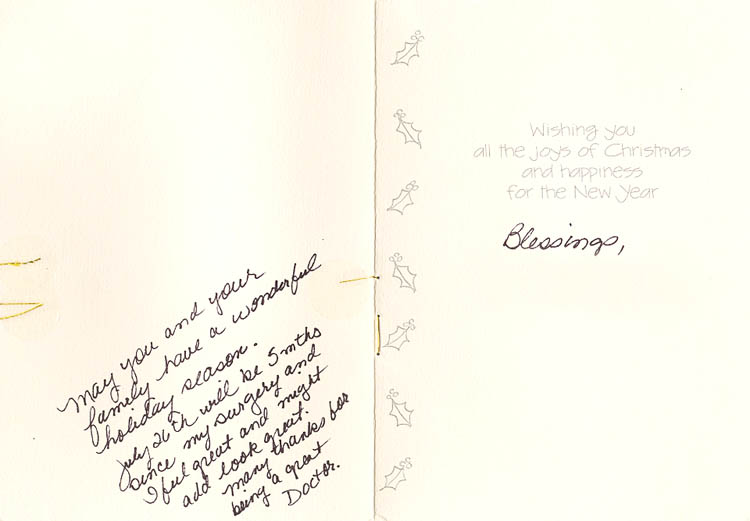 May you and your
family have a wonderful
holiday season.
July 26th will be 5 mths
since my surgery and
I feel great and might
add look great.
Many thanks for
being a great
Doctor.
Wishing you
all the joys of Christmas
and happiness
for the New Year
Blessings,